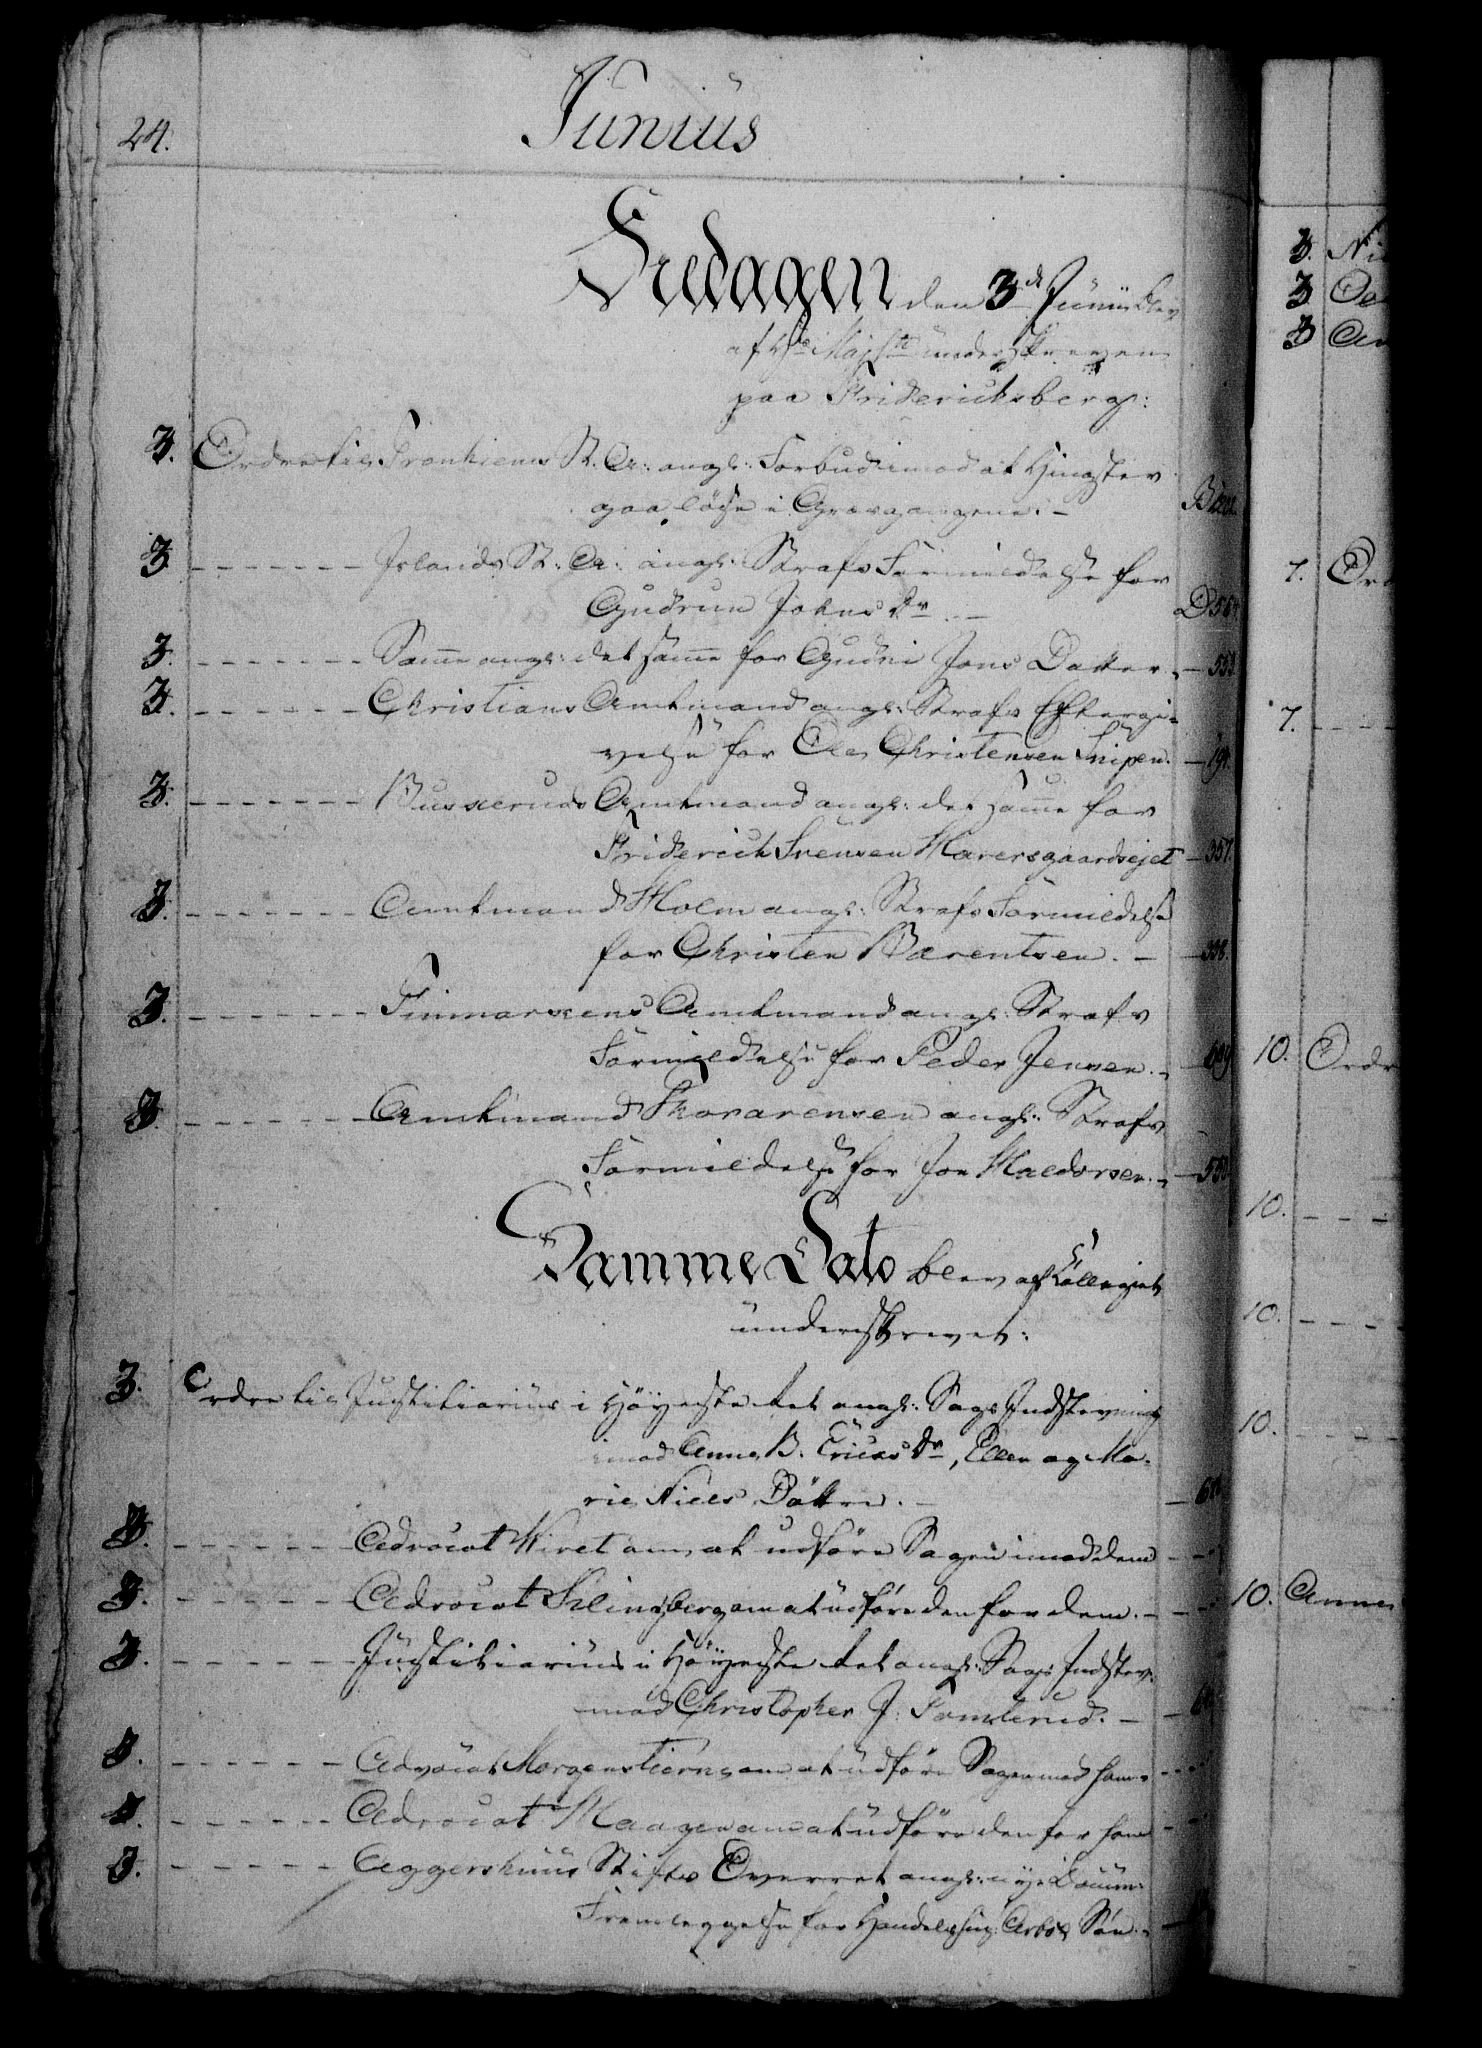 24.
Junius
Fredagen den 3de Junii blev
af Hs Majst underskreven
paa Fridericksberg:
3. Ordre til Tronhiems St. A: angl: Forbud imod at Hingster
gaae løse i Græsgangene. –
3 - - - - - - - Islands St: A: angl: Strafs Formildelse for
Gudrun Johns Dr. – D 554
3. - - - - - - - Samme angl: det samme for Gudni Jons Datter. – 553.
3. - - - - - - - Christians Amtmand angl: Strafs Eftergi-
velse for Ole Christensen Snipen. – 194.
3. - - - - - - - Buskeruds Amtmand angl: det samme for
Friderich Svensen Haversgaardsejet – 357.
3. - - - - - - - Amtmand Holm angl: Strafs Formildelse
for Christen Bærentsen. – – 338.
3. - - - - - - - Finmarkens Amtmand angl: Strafs
Formildelse for Peder Jensen. – 609
3. - - - - - - - Amtmand Thorarensen angl: Strafs
Formildelse for Jon Haldorsen. – – 550
Samme Dato blev af Collegiet
underskrevet:
3. Ordre til Justitiarius i Høyesteret angl: Sags Indstevning
imod Anne B. Ericks Dr, Ellen og Ma-
rie Niels Døttre. –
3. - - - - - - - Advocat Wivet om at udføre Sagen imod dem – –
3. - - - - - - - Advocat Klingberg om at udføre den for dem. – –
3. - - - - - - - Justitiarius i Høyesteret angl: Sags Indstev:
mod Christopher J: Tomlerud. –
3. - - - - - - - Advocat Morgenstierne om at udføre Sagen mod ham – – –
3. - - - - - - - Advocat Haagen om at udføre den for ham – –
3. - - - - - - - Aggershuus Stifts Overret angl: nye Docum:
Fremleggelse for Handelshuus: Arbo & Søn. –
3. Ni
3
3
7. Ord
7. - - -
10. Ordr
10. - - -
10. - - -
10. - - -
10. Anna